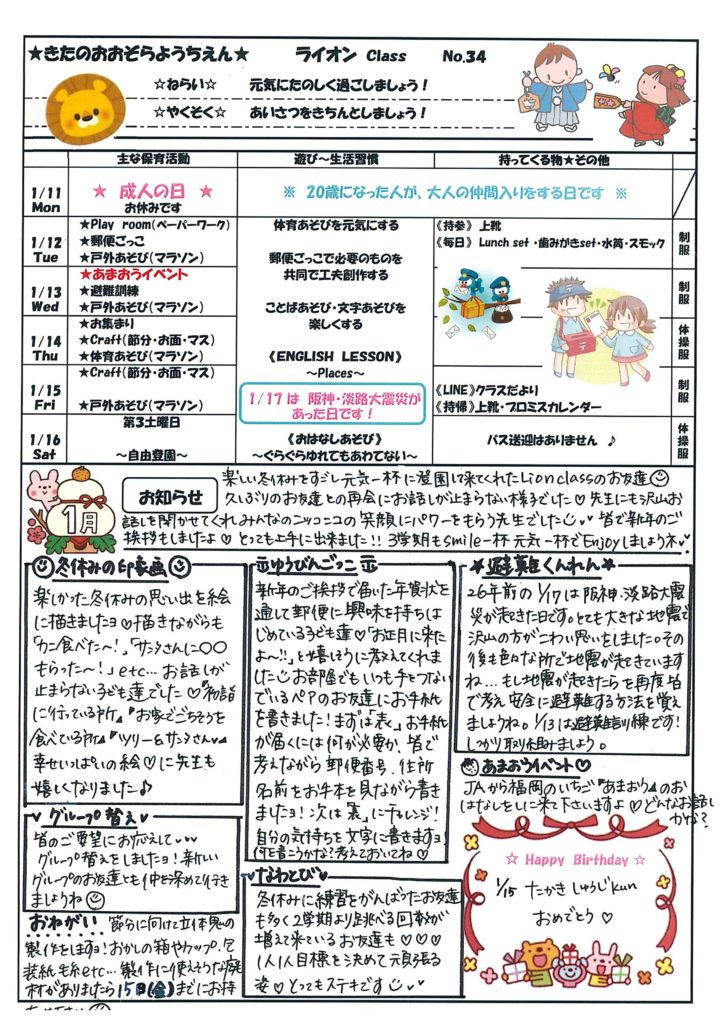 ★きたのおおぞらようちえん★　ライオン Class　No.34
☆ねらい☆　元気にたのしく過ごしましょう！
☆やくそく☆　あいさつをきちんとしましょう！
主な保育活動　遊び～生活習慣　持ってくる物★その他
1/11 Mon
★ 成人の日 ★
お休みです
※ 20歳になった人が、大人の仲間入りをする日です ※
1/12 Tue
★Play room(ペーパーワーク)
★郵便ごっこ
★戸外あそび(マラソン)
体育あそびを元気にする
郵便ごっこで必要のものを
共同で工夫創作する
《持参》上靴
《毎日》Lunch set・歯みがきset・水筒・スモック
制服
1/13 Wed
★あまおうイベント
★避難訓練
★戸外あそび(マラソン)
ことばあそび・文字あそびを
楽しくする
制服
1/14 Thu
★お集まり
★Craft(節分・お面・マス)
★体育あそび(マラソン)
《ENGLISH LESSON》
～Places～
体操服
1/15 Fri
★Craft(節分・お面・マス)
★戸外あそび(マラソン)
1/17は 阪神・淡路大震災が
あった日です！
《LINE》クラスだより
《持帰》上靴・プロミスカレンダー
制服
1/16 Sat
第3土曜日
～自由登園～
《おはなしあそび》
～ぐらぐらゆれてもあわてない～
バス送迎はありません ♪
体操服
1月
お知らせ
楽しい冬休みをすごし元気一杯に登園して来てくれたLion classのお友達
久しぶりのお友達との再会にお話しが止まらない様子でした♡先生にも沢山お
話しを聞かせてくれみんなのニッコニコの笑顔にパワーをもらう先生でした 皆で新年のご
挨拶もしましたよ♡とっても上手に出来ました!! 3学期もsmile一杯元気一杯でEnjoyしましょうネ
冬休みの印象画
楽しかった冬休みの思い出を絵
に描きましたヨ♡描きながらも
「カニ食べた～!」「サンタさんに〇〇
もらった～!」etc… お話しが
止まらない子ども達でした♡『初詣
に行っている所』『お家でごちそうを
食べている所』『ツリー&サンタさん』
幸せいっぱいの絵♡に先生も
嬉しくなりました♪
グループ替え
皆のご要望にお応えして
グループ替えをしましたヨ!新しい
グループのお友達とも仲を深めて行き
ましょうね
おねがい 節分に向けて立体鬼の
製作をしますヨ!おかしの箱やカップ、包
装紙、毛糸etc… 製作に使えそうな廃
材がありましたら15日(金)までにお持
〒ゆうびんごっこ〒
新年のご挨拶で届いた年賀状を
通して郵便に興味を持ちは
じめている子ども達♡『お正月に来た
よ～!!』と嬉しそうに教えてくれま
した お部屋でもいつも手をつな
いでいるペアのお友達にお手紙
を書きました!まずは「表」お手紙
が届くには何が必要か、皆で
考えながら郵便番号、住所
名前をお手本を見ながら書き
ましたヨ!次は「裏」にチャレンジ!
自分の気持ちを文字に書きますヨ!
何を書こうかな?考えておいてね♡
なわとび
冬休みに練習をがんばったお友達
も多く2学期より跳べる回数が
増えて来ているお友達も♡♡♡
1人1人目標を決めて頑張る
姿♡とってもステキです
★避難くんれん★
26年前の1/17は阪神・淡路大震
災が起きた日です。とても大きな地震で
沢山の方がこわい思いをしました。その
後も色々な所で地震が起きています
ね… もし地震が起きたらを再度皆
で考え安全に避難する方法を覚え
ましょうね。1/13は避難訓練です!
しっかり取り組みましょう。
あまおうイベント♡
JAから福岡のいちご『あまおう』のお
はなしをしに来て下さいますよ♡どんなお話し
かな?
☆ Happy Birthday ☆
1/15 たかき しゅうじkun
おめでとう♡